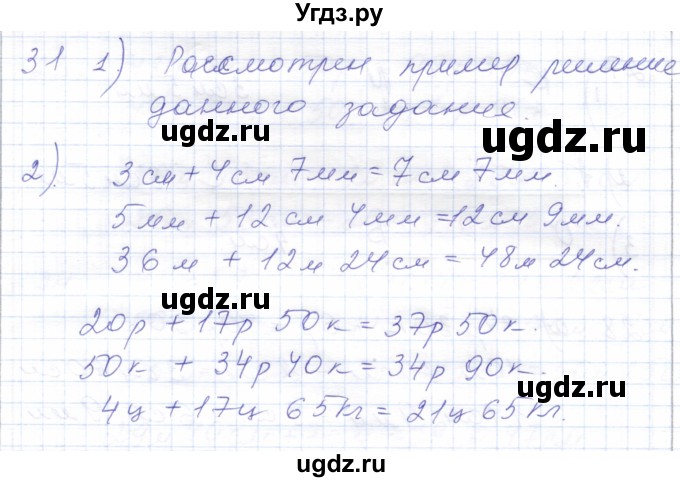 Угдз.ру
31 1) Рассмотрен пример решение
данного задания.
ugdz.ru ugdz.ru
2). 3 см + 4 см 7 мм = 7 см 7 мм.
5 мм + 12 см 4 мм = 12 см 9 мм.
36 м + 12 м 24 см = 48 м 24 см.
ugdz.ru
20 р + 17 р 50 к = 37 р 50 к.
50 к + 34 р 40 к = 34 р 90 к.
ugdz.ru
4 ц + 17 ц 65 кг = 21 ц 65 кг.
ugdz.ru